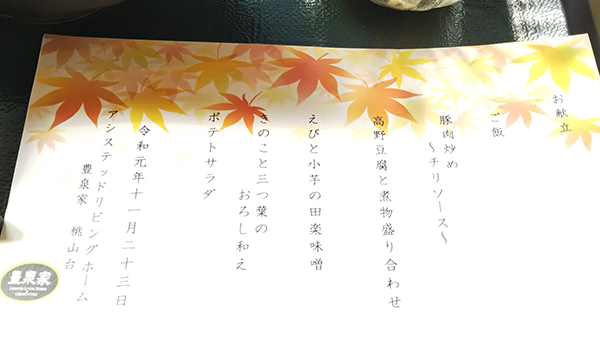 お献立
ご飯
豚肉炒め
～チリソース～
高野豆腐と煮物盛り合わせ
えびと小芋の田楽味噌
きのこと三つ葉の
おろし和え
ポテトサラダ
令和元年十一月二十三日
アシステッドリビングホーム
豊泉家 桃山台
豊泉家